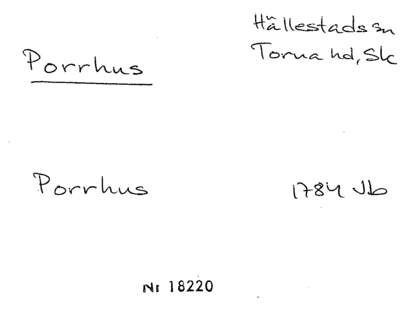 Porrhus
Hällestads sn
Torna hd, Sk
Porrhus
1784 Jb
Nr 18220